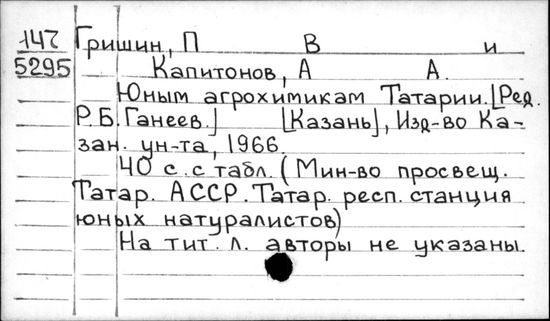 147 Гришин, П В и
5295 Капитонов, А А.
Юным агрохимикам Татарии. [Ред.
Р.Б. Ганеев.] [Казань], Изд-во Ка-
зан. ун-та, 1966.
40 с. с табл. (Мин-во просвещ.
Татар. АССР. Татар. респ. станция
юных натуралистов)
На тит. л. авторы не указаны.